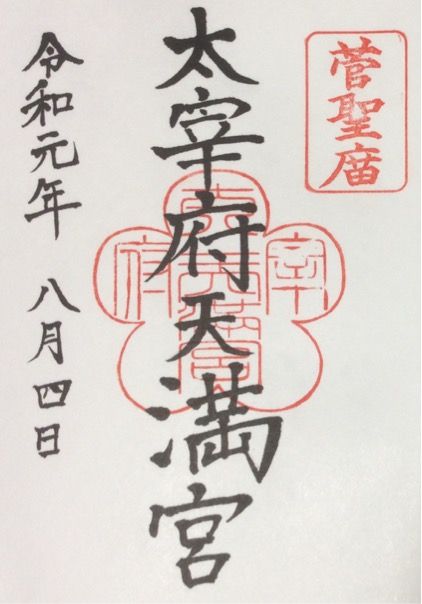 菅聖庿
太宰府天満宮
令和元年 八月四日